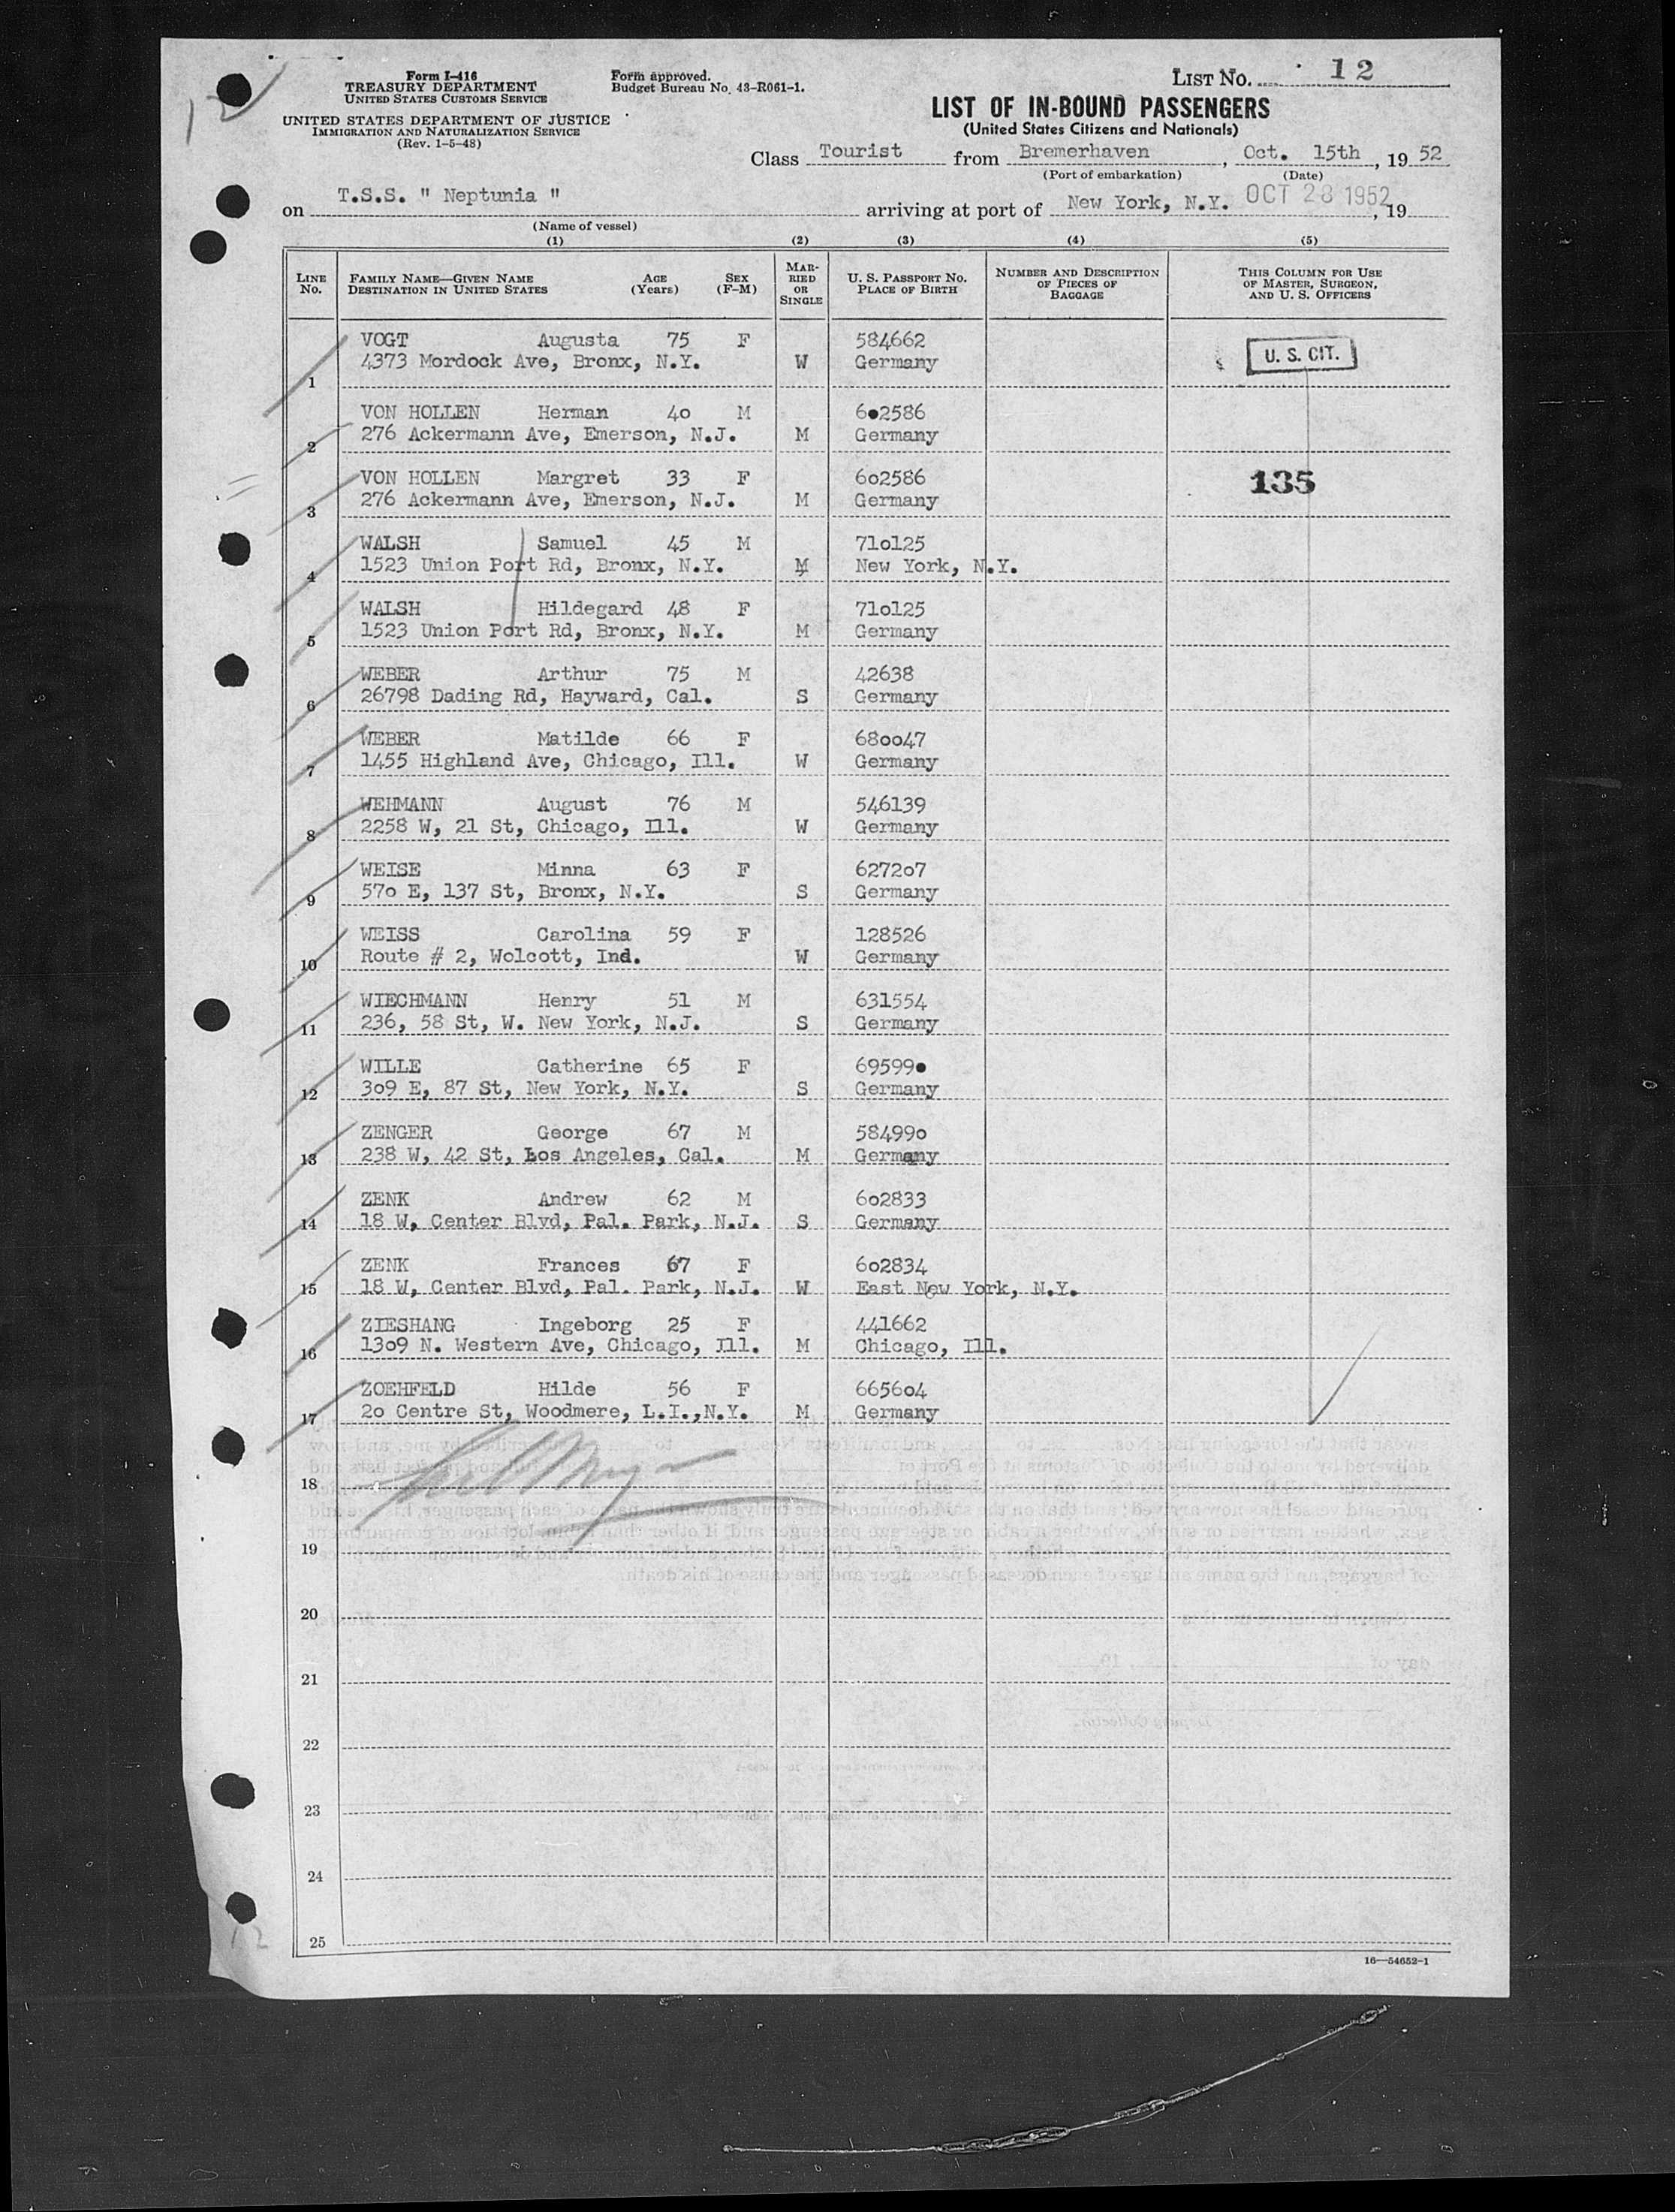 Form I-416
TREASURY DEPARTMENT
UNITED STATES CUSTOMS SERVICE
UNITED STATES DEPARTMENT OF JUSTICE
IMMIGRATION AND NATURALIZATION SERVICE
(Rev. 1-5-48)
Form approved.
Budget Bureau No. 43-R061-1.
LIST NO. 12
LIST OF IN-BOUND PASSENGERS
(United States Citizens and Nationals)
Class Tourist from Bremerhaven, Oct. 15th, 19 52
(Port of embarkation) (Date)
on T.S.S. " Neptunia " arriving at port of New York, N.Y. OCT 28 1952, 19
(Name of vessel)
(1) (2) (3) (4) (5)
LINE NO. FAMILY NAME—GIVEN NAME DESTINATION IN UNITED STATES AGE (Years) SEX (F-M) MARRIED OR SINGLE U. S. PASSPORT NO. PLACE OF BIRTH NUMBER AND DESCRIPTION OF PIECES OF BAGGAGE THIS COLUMN FOR USE OF MASTER, SURGEON, AND U. S. OFFICERS
VOGT Augusta 75 F 584662 U. S. CIT.
1 4373 Mordock Ave, Bronx, N.Y. W Germany
VON HOLLEN Herman 40 M 602586
2 276 Ackermann Ave, Emerson, N.J. M Germany
VON HOLLEN Margret 33 F 602586 135
3 276 Ackermann Ave, Emerson, N.J. M Germany
WALSH Samuel 45 M 710125
4 1523 Union Port Rd, Bronx, N.Y. M New York, N.Y.
WALSH Hildegard 48 F 710125
5 1523 Union Port Rd, Bronx, N.Y. M Germany
WEBER Arthur 75 M 42638
6 26798 Dading Rd, Hayward, Cal. S Germany
WEBER Matilde 66 F 680047
7 1455 Highland Ave, Chicago, Ill. W Germany
WEHMANN August 76 M 546139
8 2258 W, 21 St, Chicago, Ill. W Germany
WEISE Minna 63 F 627207
9 570 E, 137 St, Bronx, N.Y. S Germany
WEISS Carolina 59 F 128526
10 Route # 2, Wolcott, Ind. W Germany
WIECHMANN Henry 51 M 631554
11 236, 58 St, W. New York, N.J. S Germany
WILLE Catherine 65 F 695990
12 309 E, 87 St, New York, N.Y. S Germany
ZENGER George 67 M 584990
13 238 W, 42 St, Los Angeles, Cal. M Germany
ZENK Andrew 62 M 602833
14 18 W, Center Blvd, Pal. Park, N.J. S Germany
ZENK Frances 67 F 602834
15 18 W, Center Blvd, Pal. Park, N.J. W East New York, N.Y.
ZIESHANG Ingeborg 25 F 441662
16 1309 N. Western Ave, Chicago, Ill. M Chicago, Ill.
ZOEHFELD Hilde 56 F 665604
17 20 Centre St, Woodmere, L.I.,N.Y. M Germany
18
19
20
21
22
23
24
25
12
16—54652-1